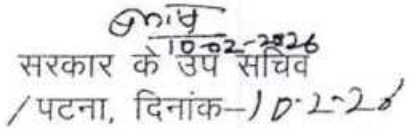 10-02-2026
सरकार के उप सचिव
/पटना, दिनांक–10-2-26